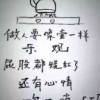 做人要像壶一样
乐观
屁股都烧红了
还有心情